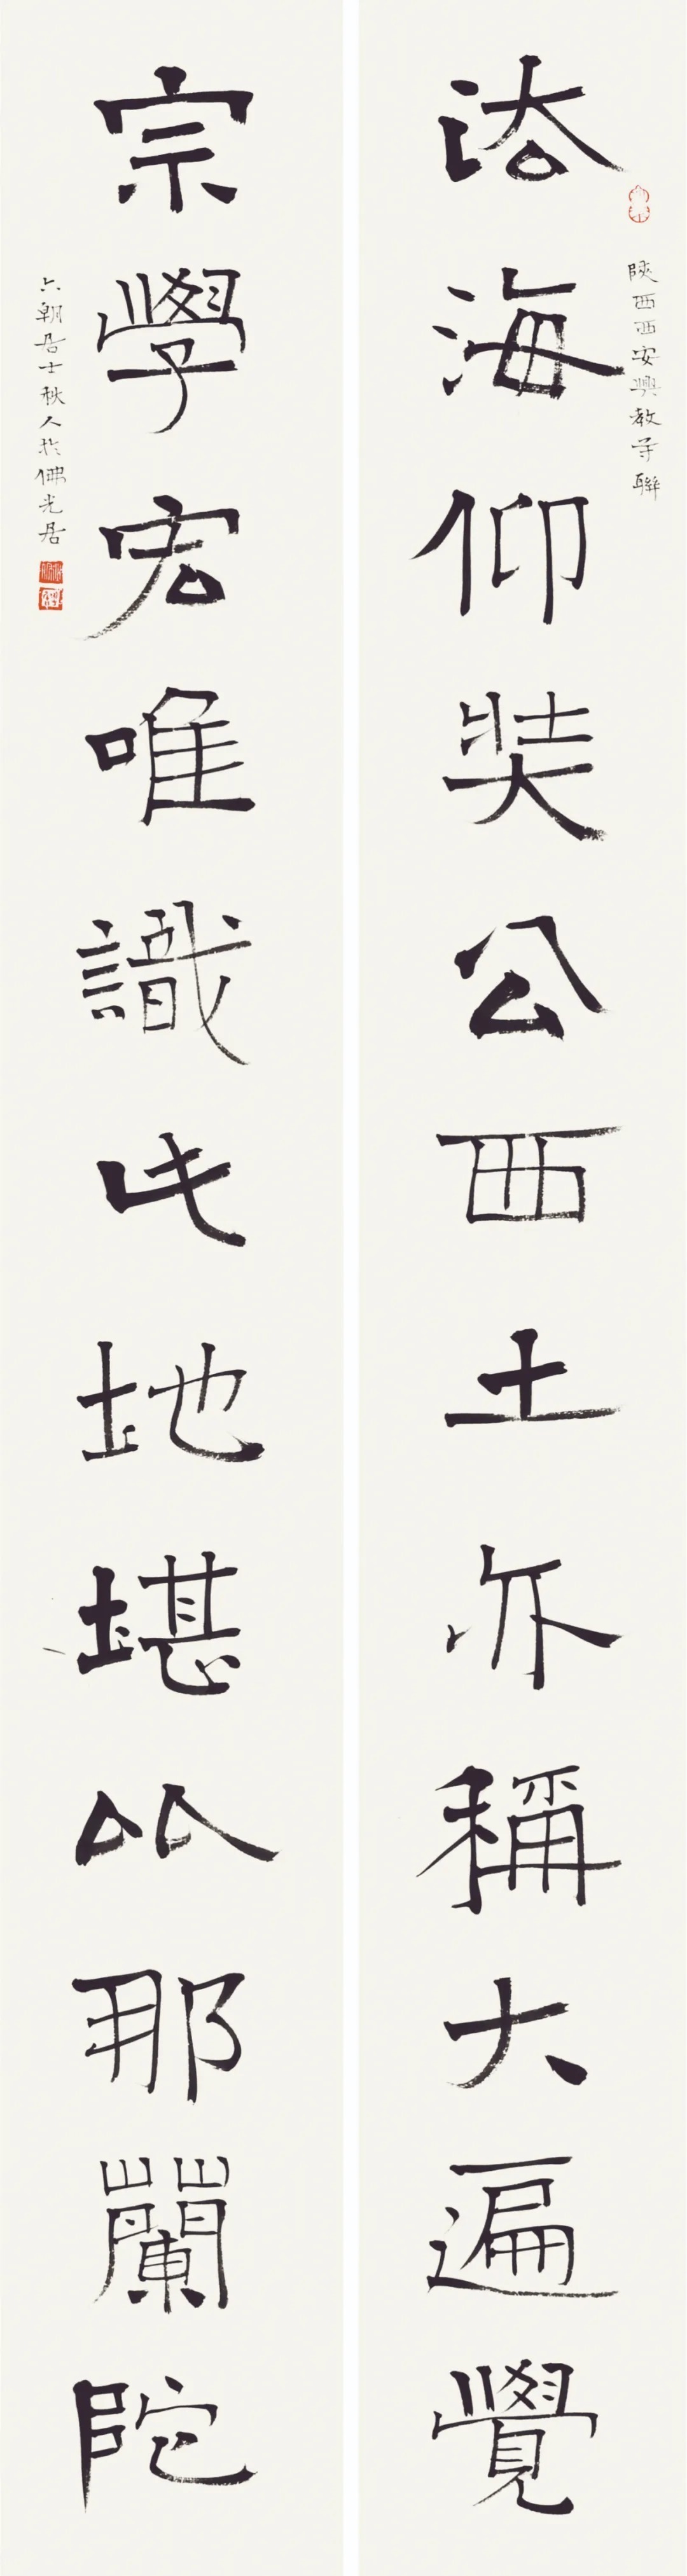 陝西西安興教寺聯
法海仰奘公西土亦稱大遍覺
宗學宏唯識此地堪以那蘭陀
六朝居士秋人於佛光居